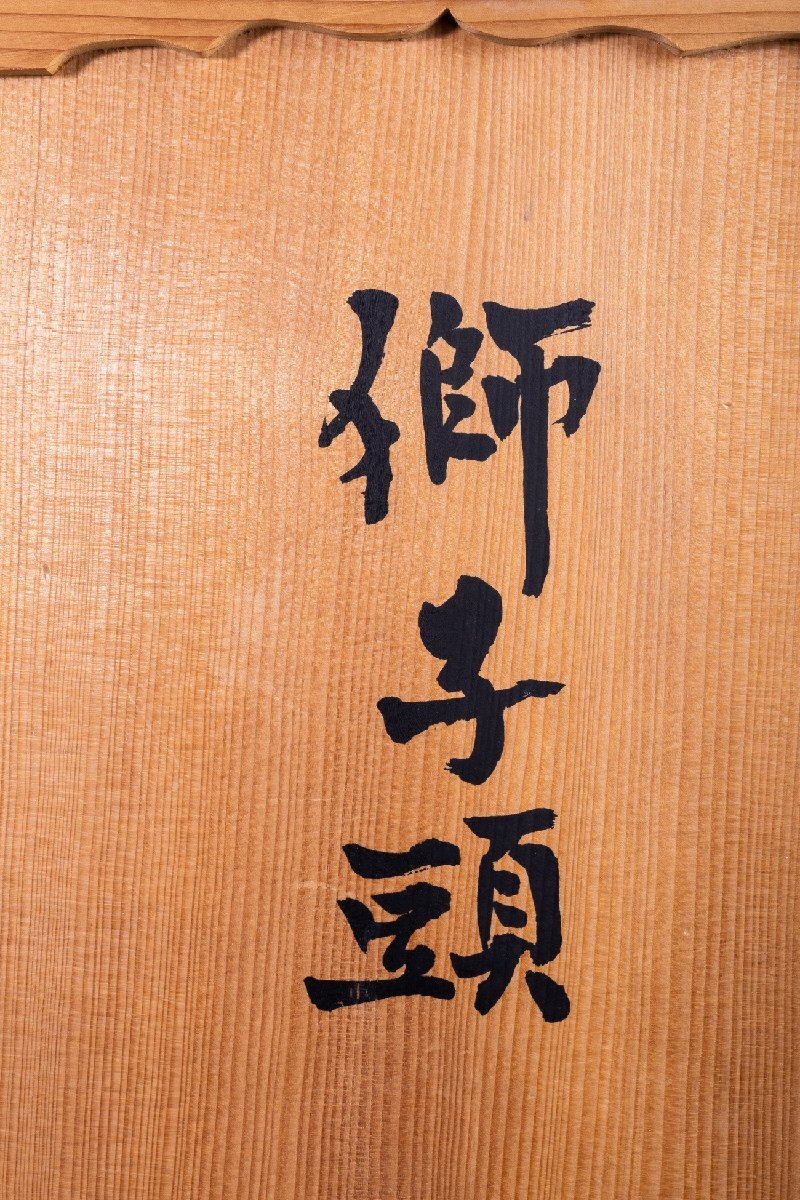 獅子頭